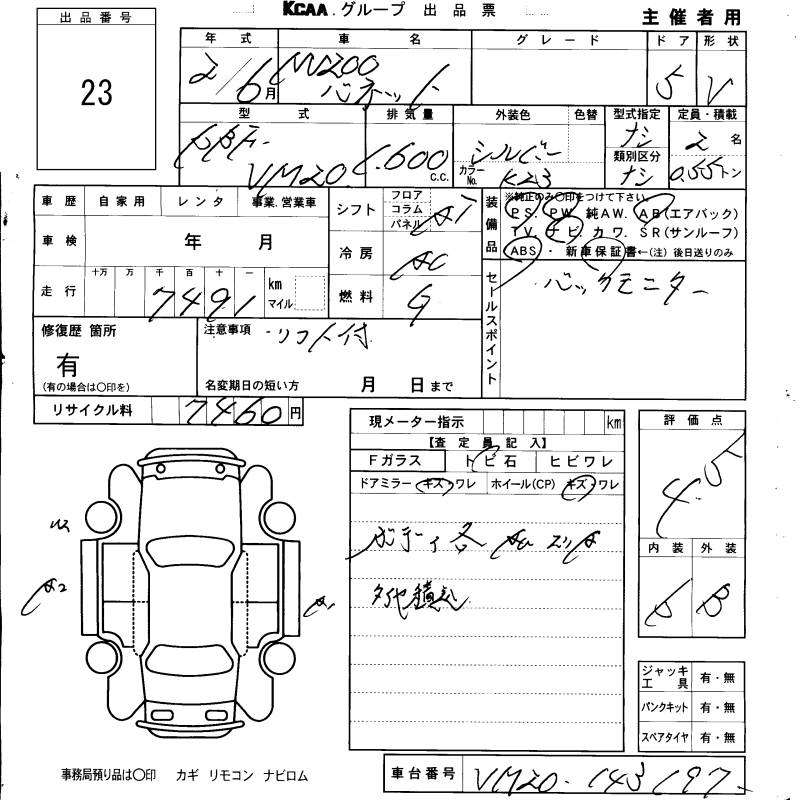 KCAA.グループ 出品票
主催者用
出品番号
23
年式 車名 グレード ドア 形状
2/6月 NV200 バネット 5 V
型式 排気量 外装色 色替 型式指定 定員・積載
VM20 1.600 c.c. シルバー カラーNo. K23 ナシ 類別区分 ナシ 2名 0.55トン
車歴 自家用 レンタ 事業.営業車
シフト フロア コラム パネル AT
車検 年 月
冷房 AC
走行 十万 万 千 百 十 一 7491 km マイル
燃料 G
装備品
※純正のみ〇印をつけて下さい。
PS. PW. 純AW. AB(エアバック)
TV. ナビ. カワ. SR(サンルーフ)
ABS ・ 新車保証書←(注)後日送りのみ
セールスポイント
バックモニター
修復歴 箇所
有
(有の場合は〇印を)
注意事項 リフト付
名変期日の短い方 月 日まで
リサイクル料 7460円
現メーター指示 km
【査定員記入】
Fガラス トビ石 ヒビワレ
ドアミラー キズ・ワレ ホイール(CP) キズ・ワレ
ボディ各
評価点
4.5
内装 外装
B
A2
A1
ジャッキ工具 有・無
パンクキット 有・無
スペアタイヤ 有・無
事務局預り品は〇印 カギ リモコン ナビロム
車台番号 VM20-143197